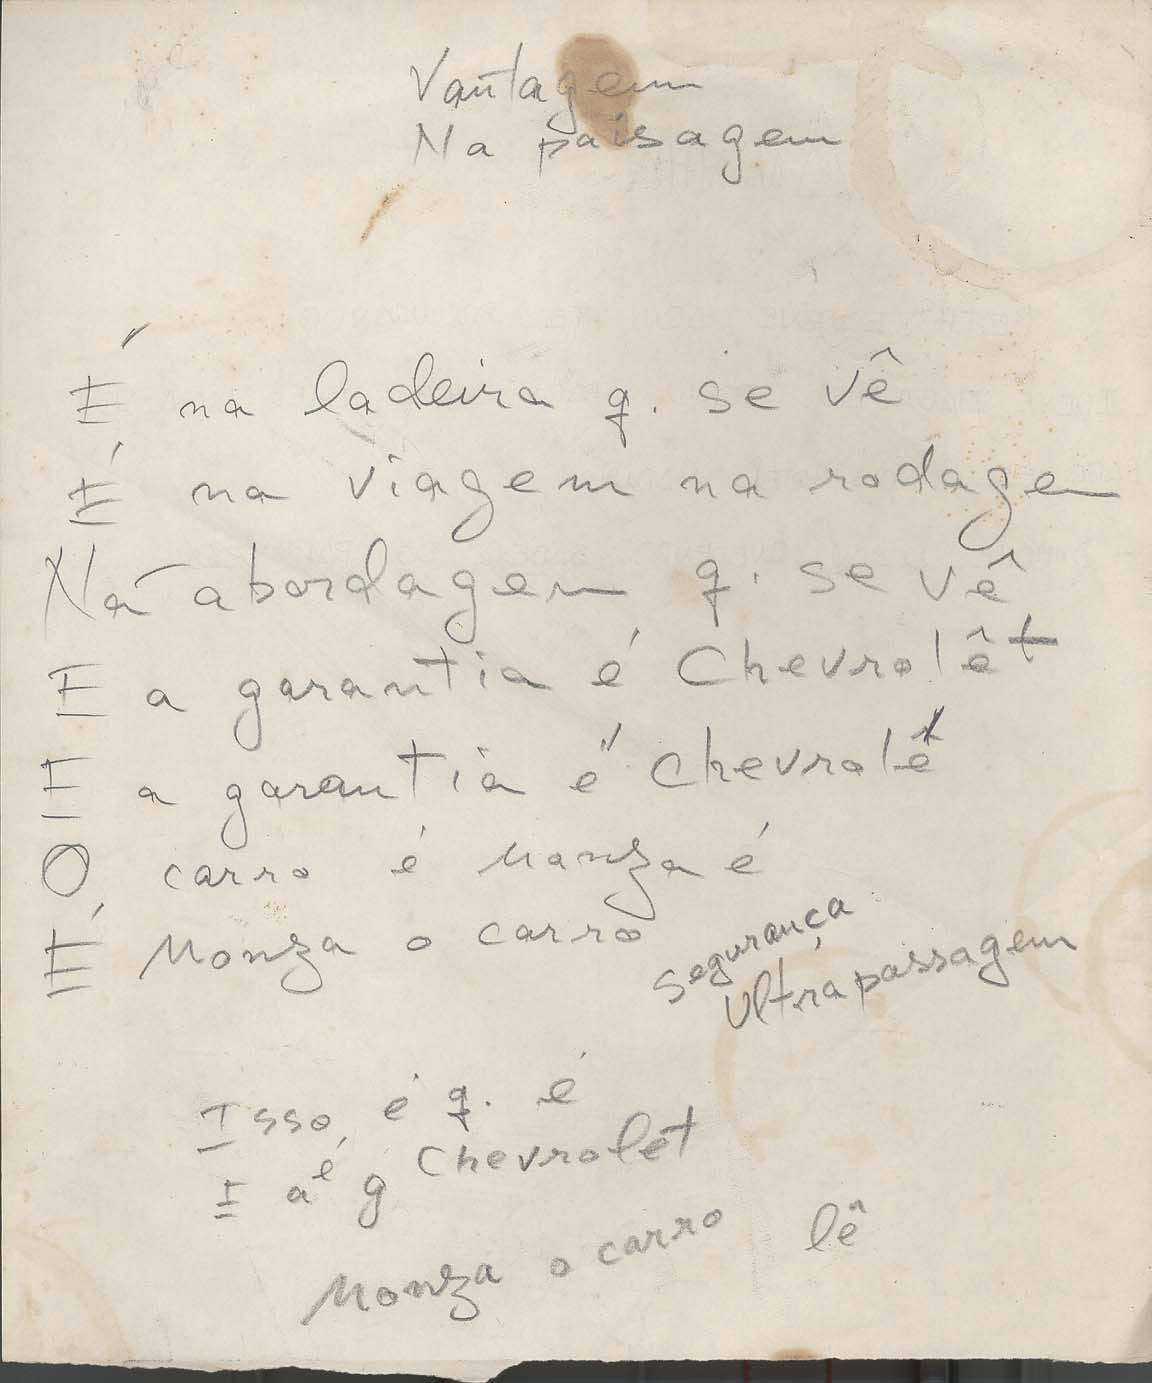 Vantagem
Na paisagem
É na ladeira q. se vê
É na viagem na rodagem
Na abordagem q. se vê
E a garantia é Chevrolêt
E a garantia é Chevrolêt
O carro é Monza é
É Monza o carro
Segurança
Ultrapassagem
Isso é q. é
E a é g Chevrolet
Monza o carro lê